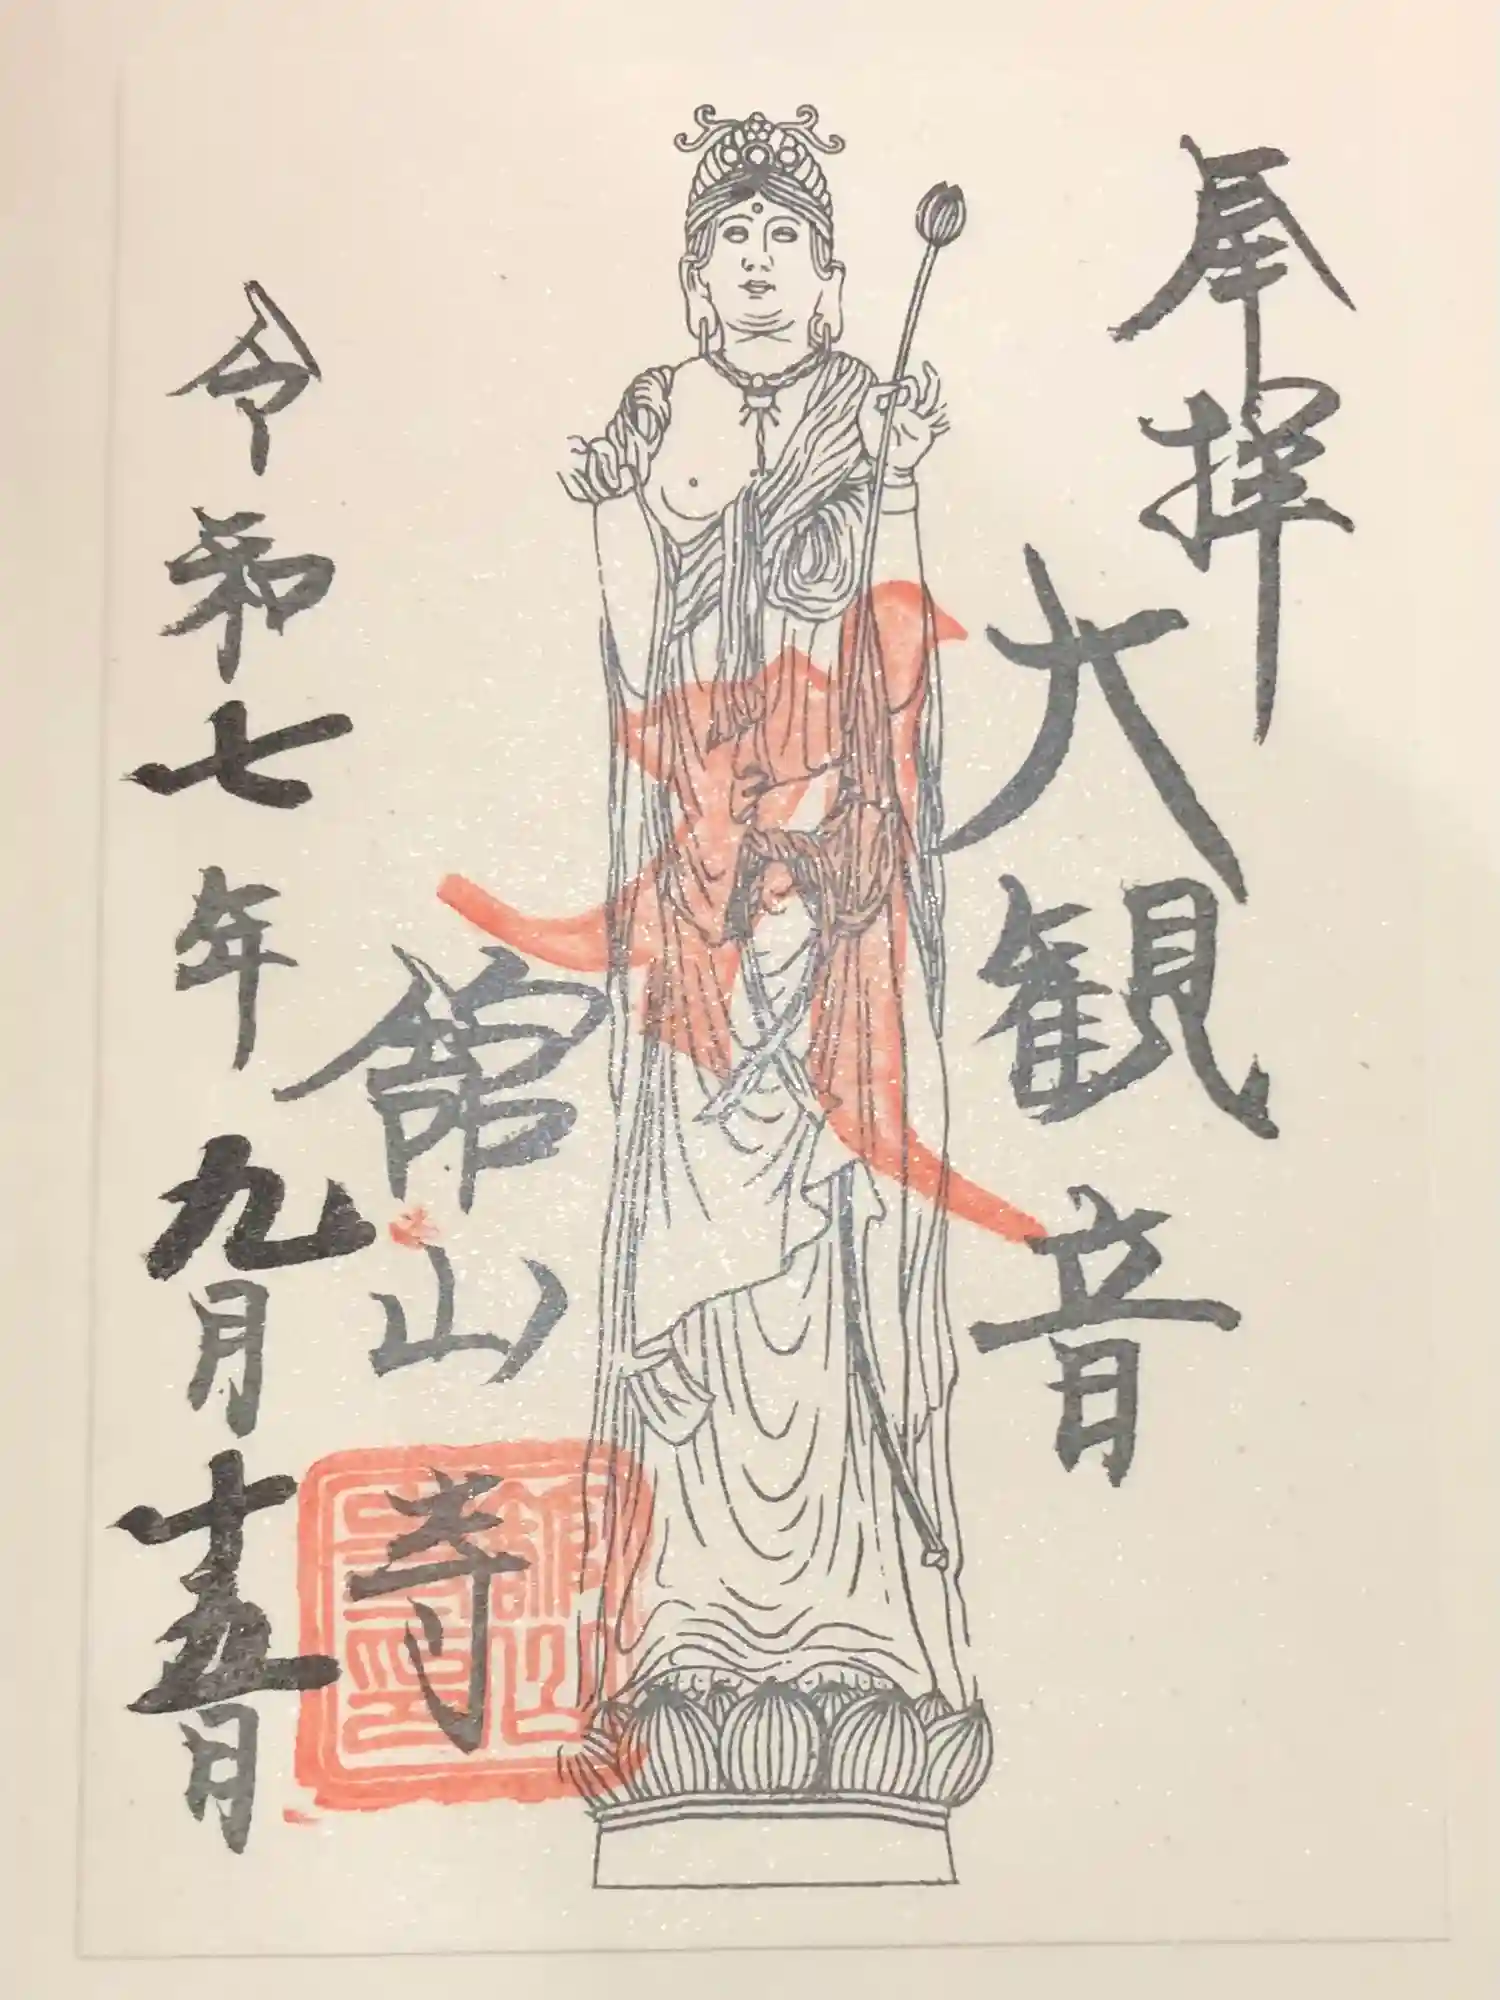 奉拝
大観音
舘山寺
令和七年九月十五日
舘山寺印